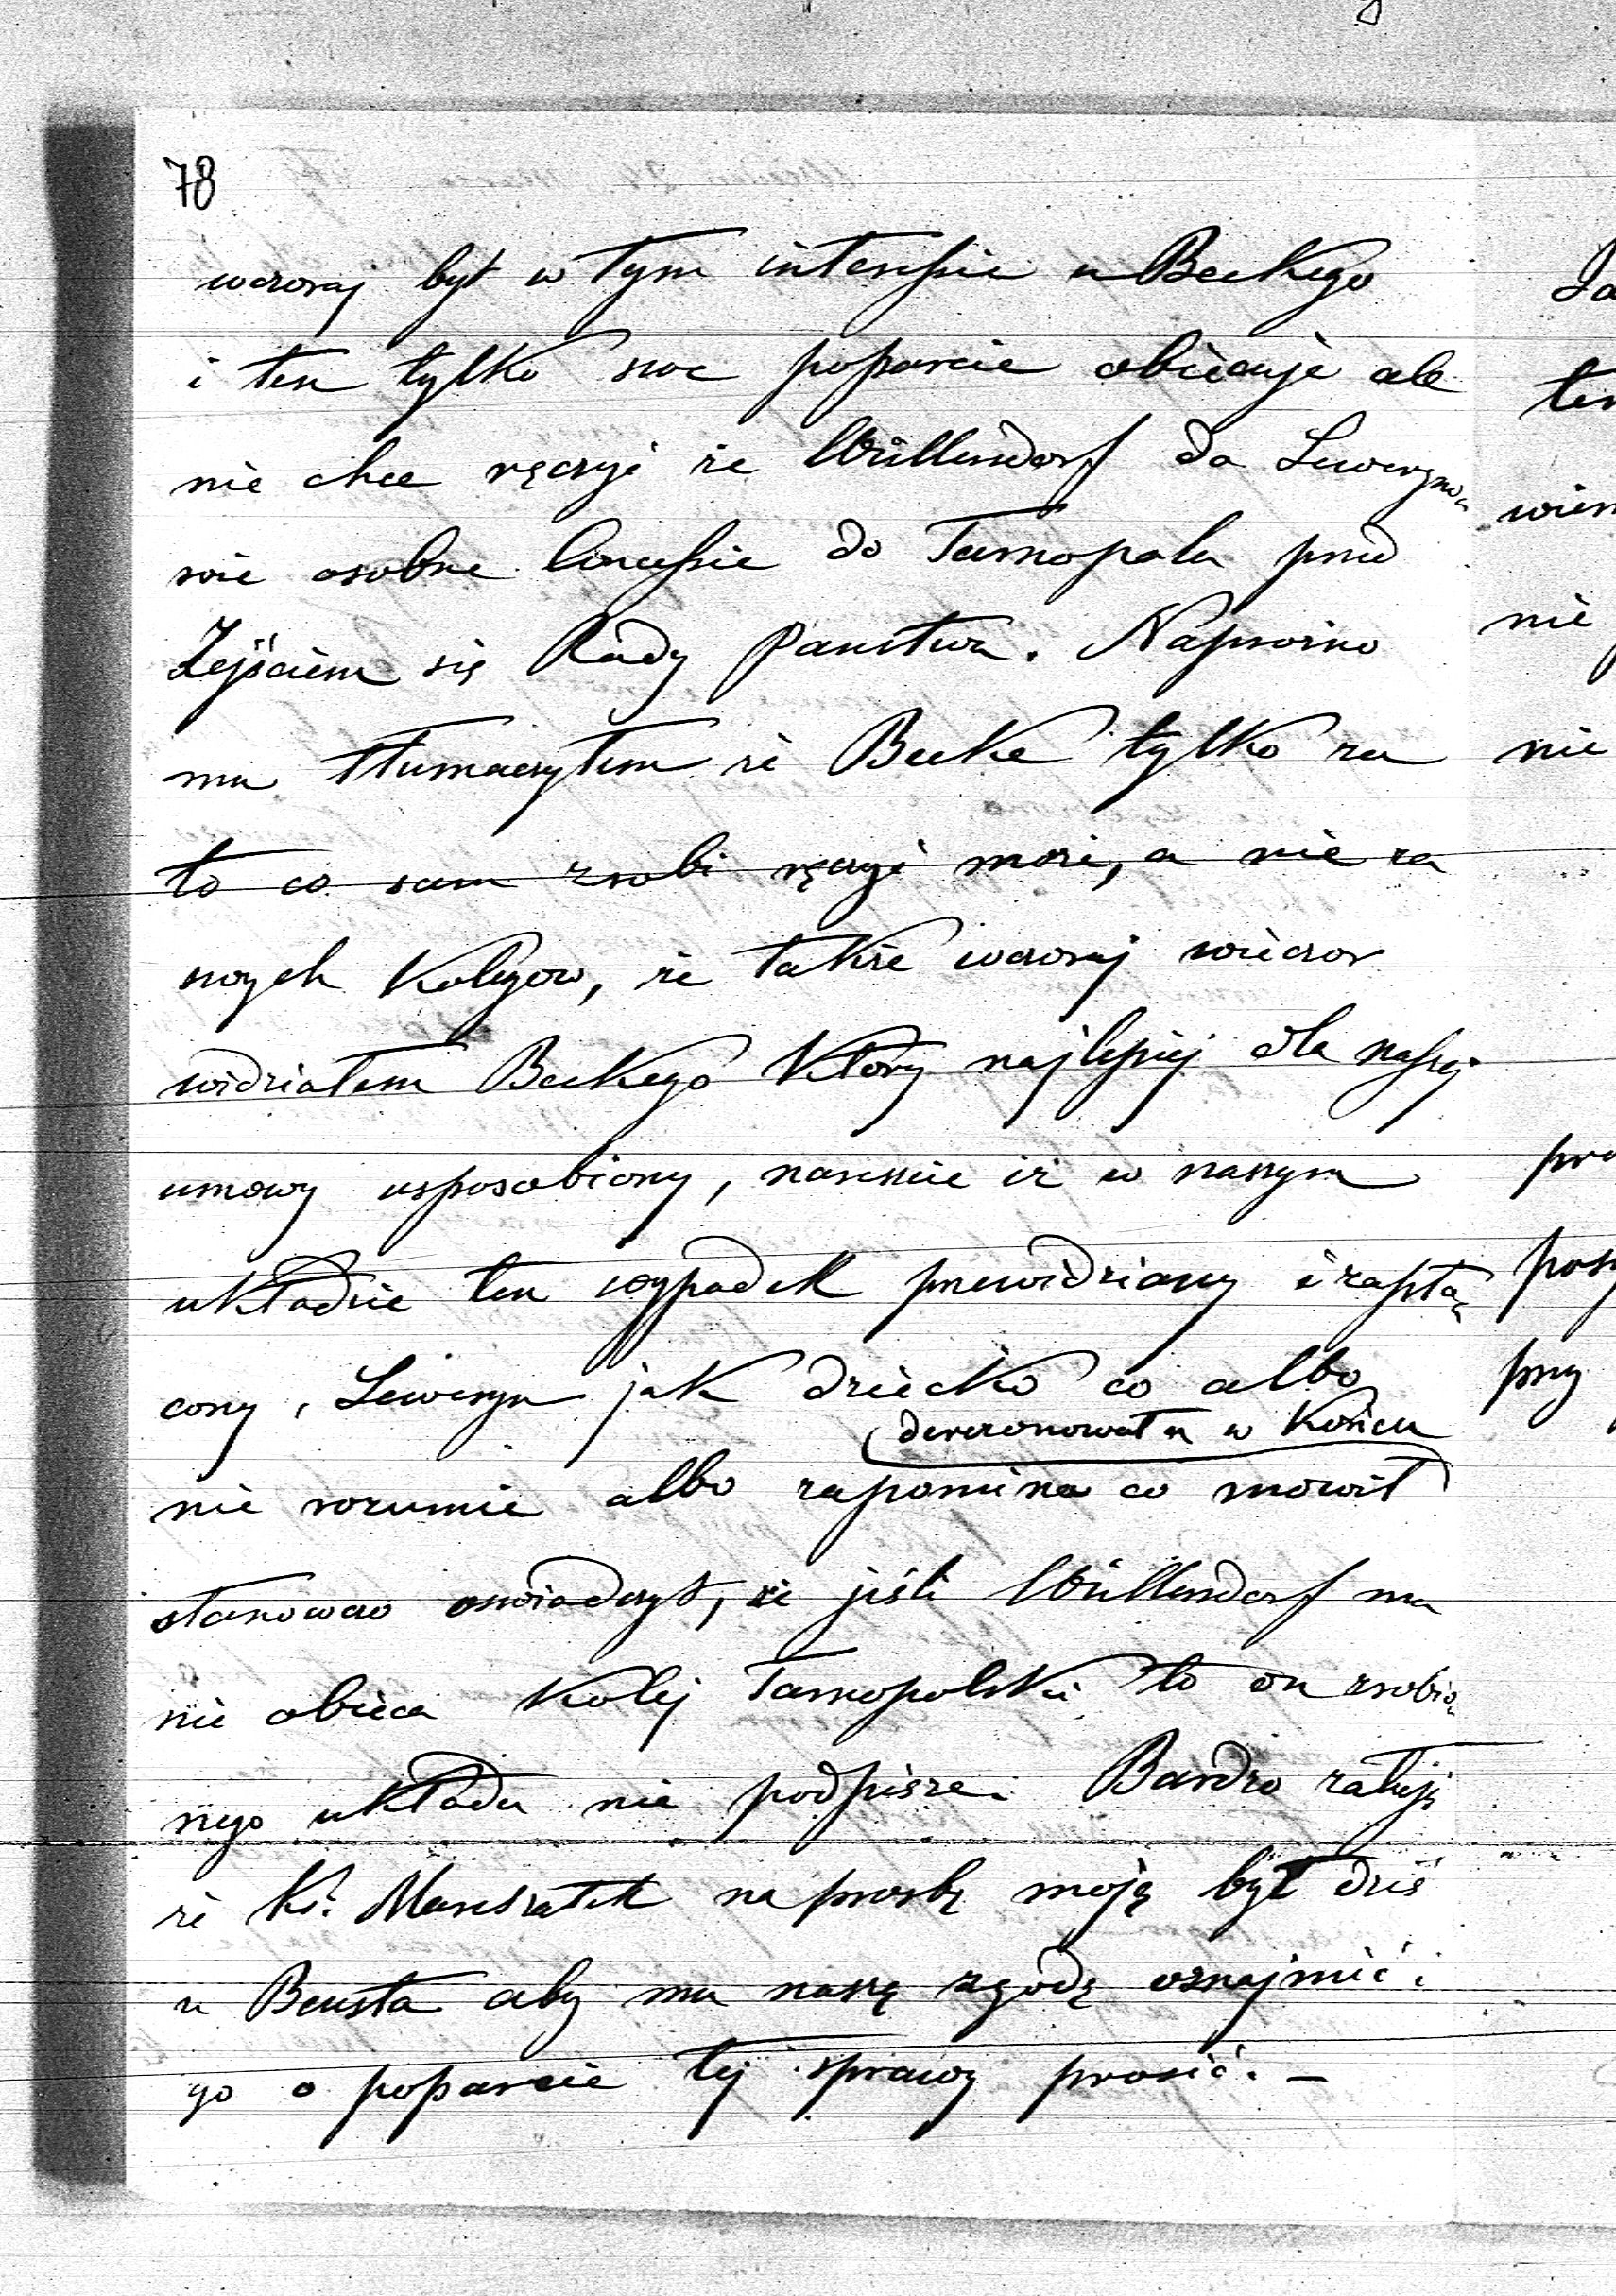 78
wczoraj był w tym interessie u Beckego
i ten tylko swe poparcie obiecuje ale
nie chce ręczyć że Wüllendorf da Seweryno=
wie osobne concessie do Tarnopola przed
Zejściem się Rady Panstwa. Naprożno
mu tłumaczyłem że Becke tylko za
to co sam zrobi ręczyć może, a nie za
swych Kolegow, że także wczoraj wieczor
widziałem Beckego Który najlepiej dla naszej
umowy usposobiony, nareszcie iż w naszym
uKładzie ten wypadek przewidziany i zapła=
cony, Seweryn jak dziecko co albo
w Końcu
nie rozumie albo zapomina co mowił
stanowczo oswiadczył, że jeśli Wüllendorf mu
nie obieca Kolej Tarnopolski to on zrobio=
nego uKładu nie podpisze. Bardzo żałuję
że Ks: Marszałek na prosbę moję był dziś
u Beusta aby mu naszę zgodę oznajmić i
go o poparcie tej sprawy prosić. –
Ja
ten
wiem
nie
nie
pro
pos
przy